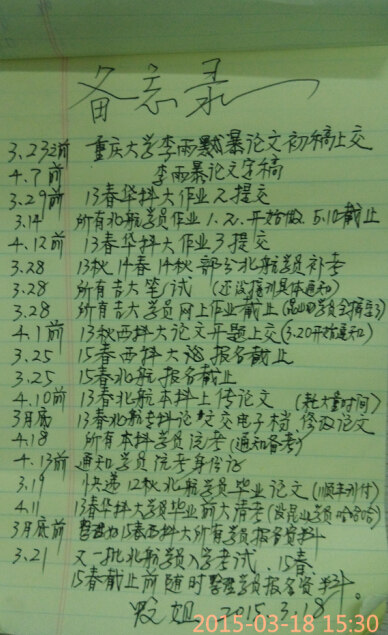 备忘录
3.23之前 重庆大学李雨默暴论文初稿上交
4.7前 李雨暴论文定稿
3.29前 13春华科大作业2提交
3.14 所有北航学员作业1.2.开始做 5.10截止
4.12前 13春华科大作业3提交
3.28 13秋14春14秋部分北航学员补考
3.28 所有吉大笔试(还没接到具体通知)
3.28 所有吉大学员网上作业截止(昆山学员全搞定了)
4.1前 13秋西科大论文开题上交(3.20开始通知)
3.25 15春西科大 报名截止
3.25 15春北航报名截止
4.10前 13春北航本科上传论文(耗大量时间)
3月底 13春北航专科论文交电子档,修改论文
4.18 所有本科学员统考(通知备考)
4.13前 通知学员统考身份证
3.19 快递12秋北航学员毕业论文(顺丰到付)
4.11 13春华科大学员毕业前大清考(没昆山学员哈哈哈)
3月底前 15春西科大所有学员报名资料
3.21 又一批北航学员入学考试.15春
15春截止前随时整理学员报名资料.
姐 2015.3.18
2015-03-18 15:30